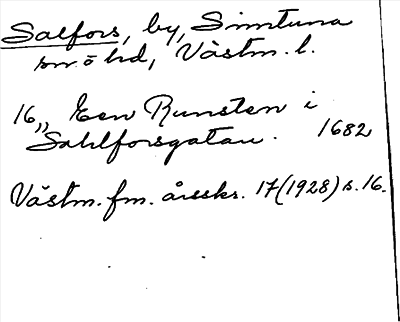 Salfors, by, Simtuna
sn. o hd, Västm. l.
16,, Een Runsten i
Sahlforsgatan. 1682
Västm. fm. årsskr. 17 (1928) s. 16.